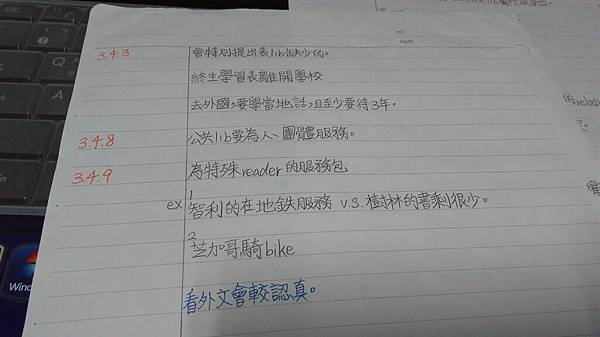 NO.
DATE
3.4.3 會特別提出表lib缺少的。
終生學習表離開學校
去外國,要學當地話,且至少要待3年。
3.4.8 公共lib要為人、團體服務。
3.4.9 為特殊reader的服務包
ex 1 智利的在地鉄服務 v.s.樹林的書剩很少。
2 芝加哥騎bike
看外文會較認真。
的relat
Wind